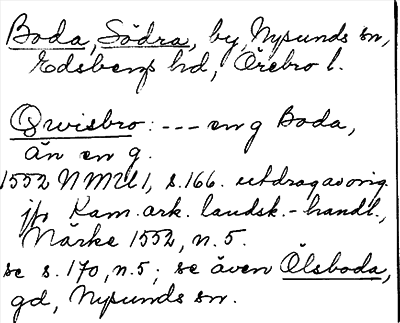 Boda, Södra, by, Nysunds sn,
Edsbergs hd, Örebro l.
Qwisbro: --- en g Boda,
än en g.
1552 NM 21, s.166. utdrag av orig.
jfr Kam.ark. landsk.-handl.,
Närke 1552, n. 5.
se s. 170, n.5; se även Ölsboda,
gd, Nysunds sn.